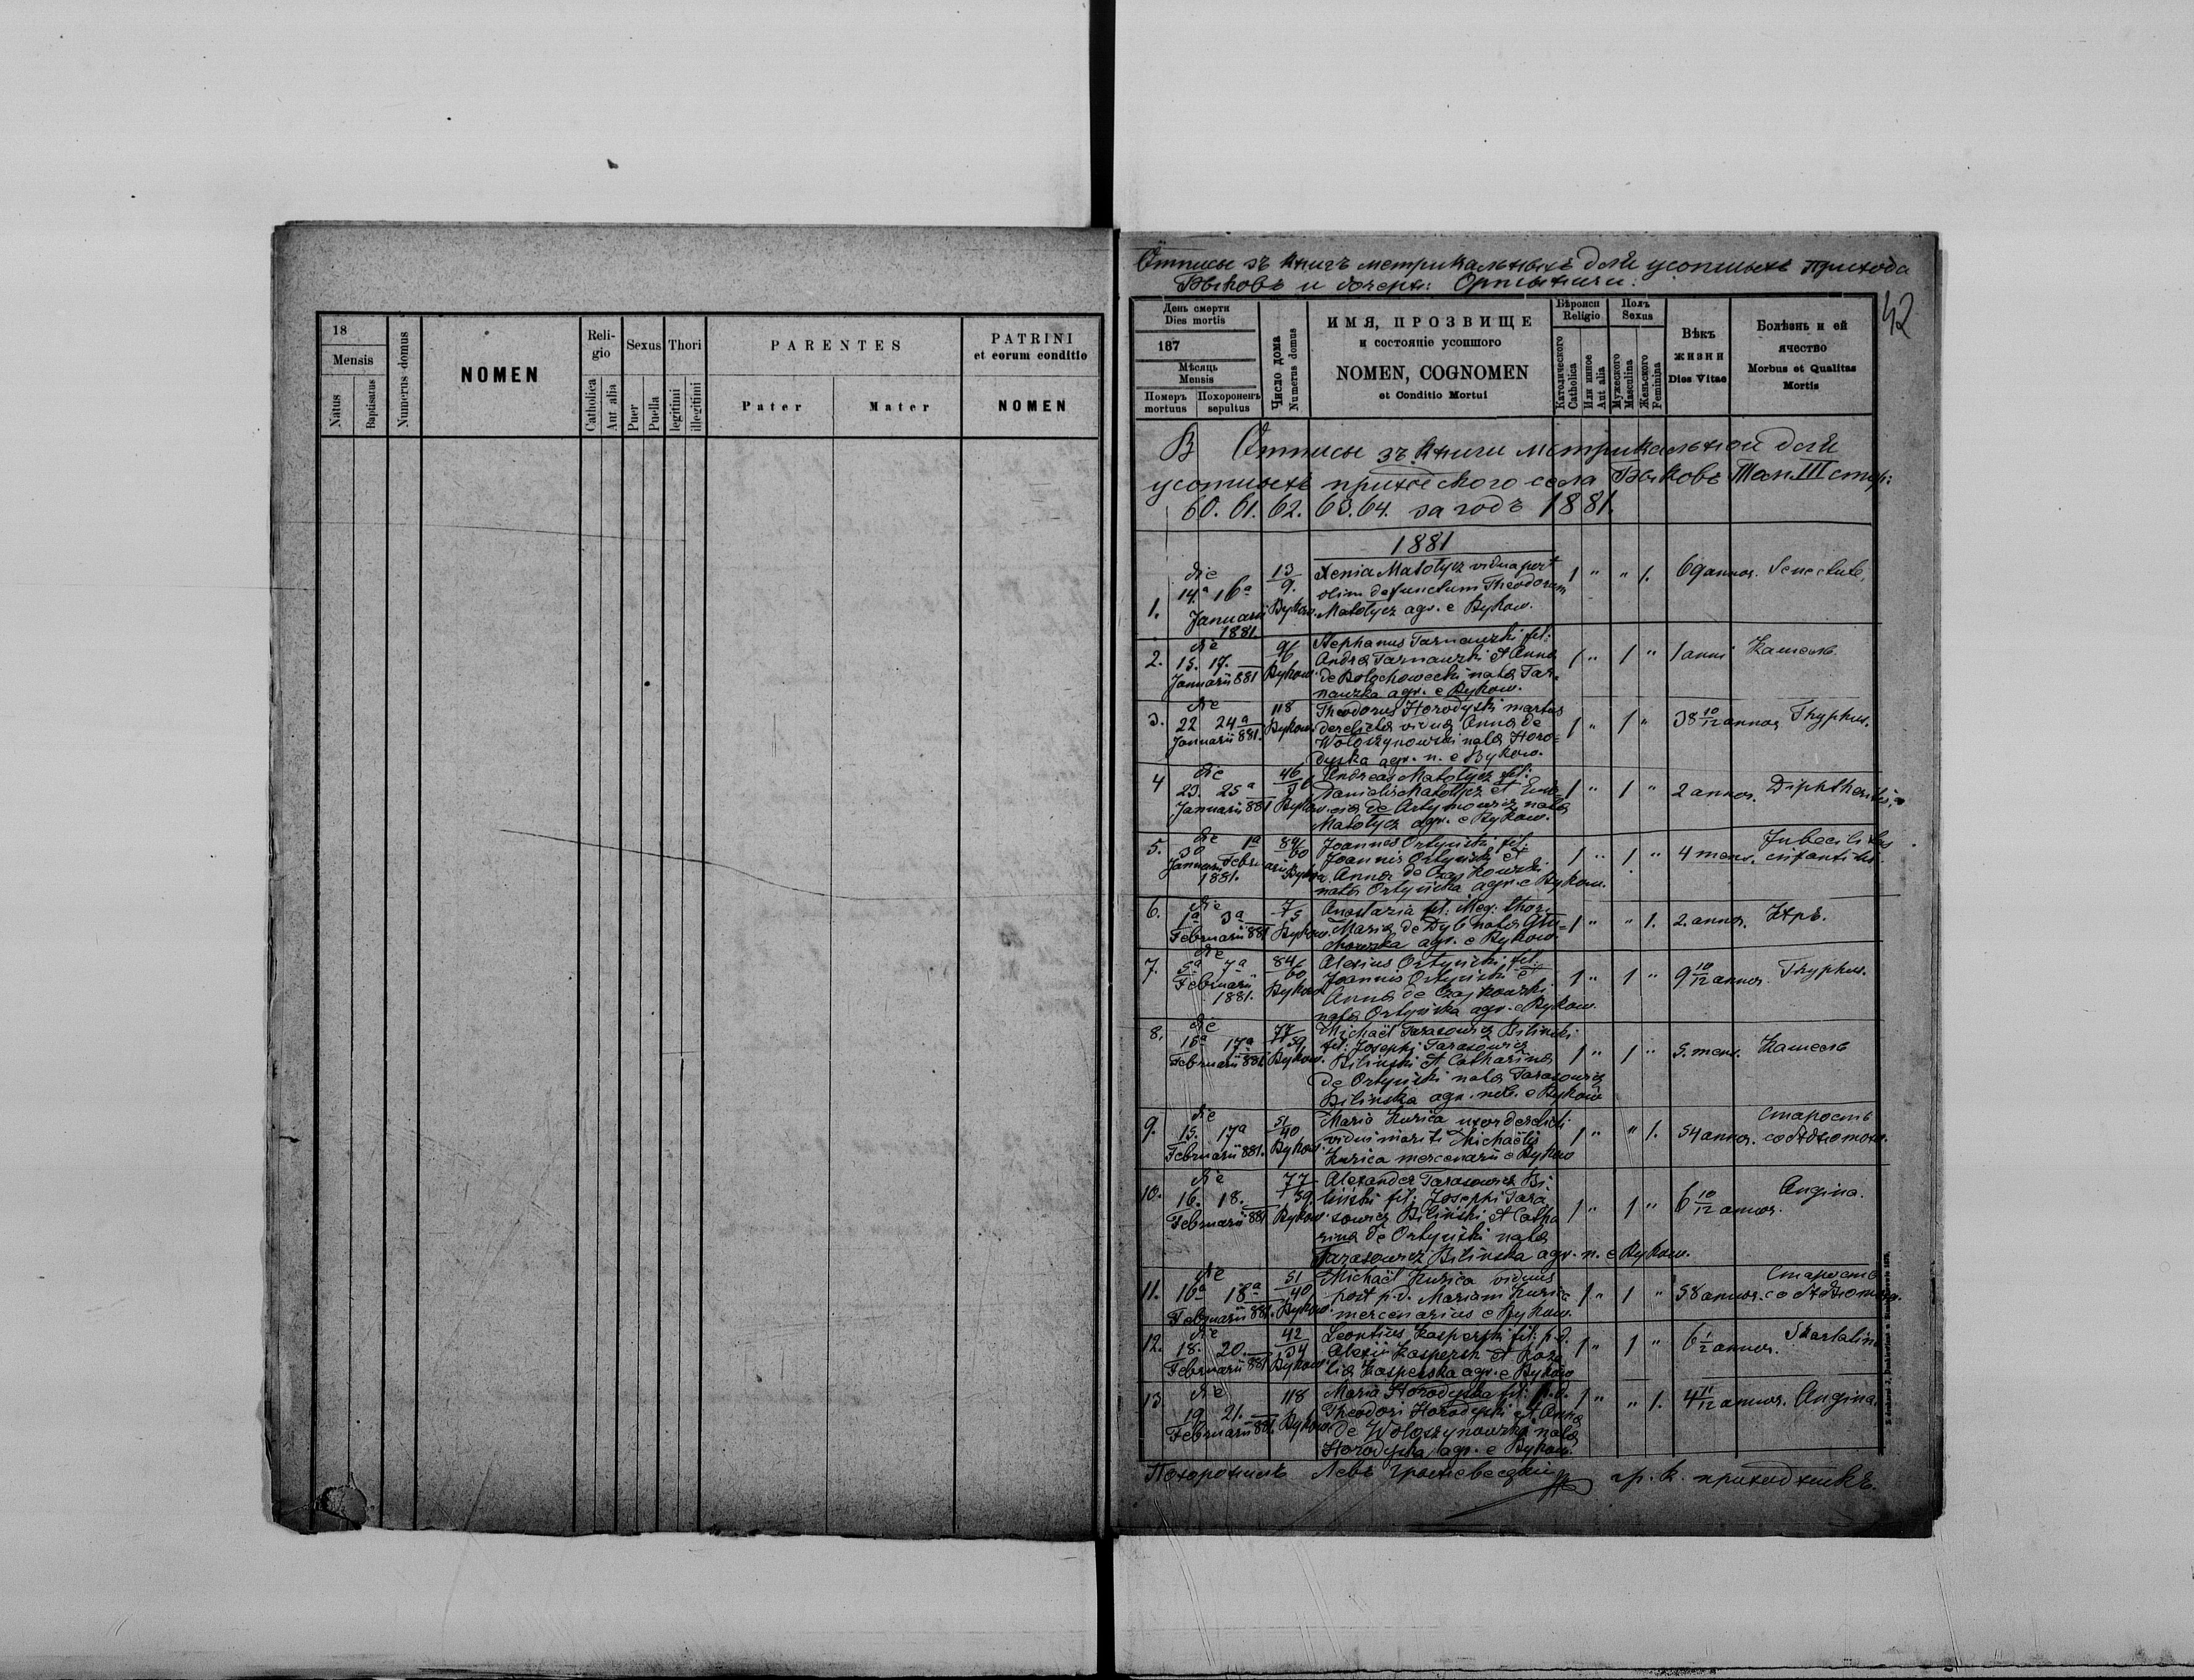 18
Mensis
Natus
Baptisatus
Numerus domus
NOMEN
Reli-
gio
Catholica
Aut alia
Sexus
Puer
Puella
Thori
legitimi
illegitimi
PARENTES
Pater
Mater
PATRINI
et eorum conditio
NOMEN
Отписы зъ книгъ метрикальныхъ для усопшыхъ прихода
Быковъ и дочерн: Ортыничи.
42
День смерти
Dies mortis
187
Мѣсяць
Mensis
Померъ
mortuus
Похороненъ
sepultus
Число дома
Numerus domus
ИМЯ, ПРОЗВИЩЕ
и состоянiе усопшого
NOMEN, COGNOMEN
et Conditio Mortui
Вѣроисп
Religio
Католического
Catholica
Или инное
Aut alia
Полъ
Sexus
Мужеского
Masculina
Женьского
Feminina
Вѣкъ
жизни
Dies Vitae
Болѣзнь и ей
ячество
Morbus et Qualitas
Mortis
В Отписы зъ книги метрикальной для
усопшыхъ приход ского села Быковъ Том. III стор:
60. 61. 62. 63. 64. за годъ 1881.
1881
1. die 14ª 16ª Januarii 1881. 13/9. Bykow.
Xenia Matolycz vidua post
olim defunctum Theodorum
Matolycz agr. e Bykow.
1 " " 1. 69 annor. Senectute,
2. die 15. 17. Januarii 881 Bykow.
Stephanus Tarnawski fil:
Andreæ Tarnawski et Anna
de Bolochowecki nata Tar-
nawska agr. e Bykow.
1 " 1 " 1 anni Кашель
3. die 22 24ª Januarii 881. 118 Bykow.
Theodorus Horodyski
derelicta vidua Anna de
Woloszynowski nata Horo=
dyska agr. n. e Bykow.
1 " 1 " 38 10/12 annor Thyphus.
4 die 23. 25ª Januarii 881 Bykow.
Andreas Matolycz fil:
Danielis Matolycz et
de Artymowicz nata
Matolycz agr. e Bykow.
1 " 1 " 2 annor. Diphtheritis,
5. die 30 1ª Januarii Februarii 1881. 84/60 Bykow
Joannes Ortyński fil:
Joannis Ortyński et
Anna de Czajkowski
nata Ortyńska agr. e Bykow.
1 " 1 " 4 mens. Imbecilitas
infantilis.
6. die 1ª 3ª Februarii 881 7/5 Bykow.
Anastazia fil: illeg: thori
Maria de Dyb nata
agr. e Bykow.
1 " " 1. 2. annor.
7. die 5ª 7ª Februarii 1881. 84/60 Bykow
Alexius Ortyński fil:
Joannis Ortyński et
Anna de Czajkowski
nata Ortyńska agr. e Bykow.
1 " 1 " 9 10/12 annor. Thyphus.
8. die 15ª 17ª Februarii 881 77/59 Bykow.
Michaël Tarasowicz Biliński
fil: Josephi Tarasowicz
Biliński et Catharina
de Ortyński nata Tarasowicz
Bilińska agr. nob. e Bykow
1 " 1 " 5. mens. Кашель
9. die 15. 17ª Februarii 881. 51/40 Bykow.
Maria Kurica uxor derelicti
vidui mariti Michaëlis
Kurica mercenarii e Bykow
1 " " 1. 54 annor. Старость
10. die 16. 18. Februarii 881 77/59. Bykow.
Alexander Tarasowicz Bi
liński fil: Josephi Tara
sowicz Biliński et Catha
rina de Ortyński nata
Tarasowicz Bilińska agr. n. e Bykow.
1 " 1 " 6 10/12 annor. Angina.
11. die 16ª 18ª Februarii 881. 51/40 Bykow.
Michaël Kurica viduus
post p. d. Mariam Kurica
mercenarius e Bykow.
1 " 1 " 58 annor. Старость
12. die 18. 20. Februarii 881 42/34 Bykow.
Leontius Kasperski fil: p. d.
Alexii Kasperski et Roza
lia Kasperska agr. e Bykow
1 " 1 " 6 1/2 annor. Skarlatina
13 die 19 21. Februarii 881. 118 Bykow
Maria Horodyska fil: p. d.
Theodori Horodyski et Anna
de Woloszynowski nata
Horodyska agr. e Bykow.
1 " " 1. 4 11/12 annor. Angina
Похоронилъ Левъ гр. к. приходникъ.